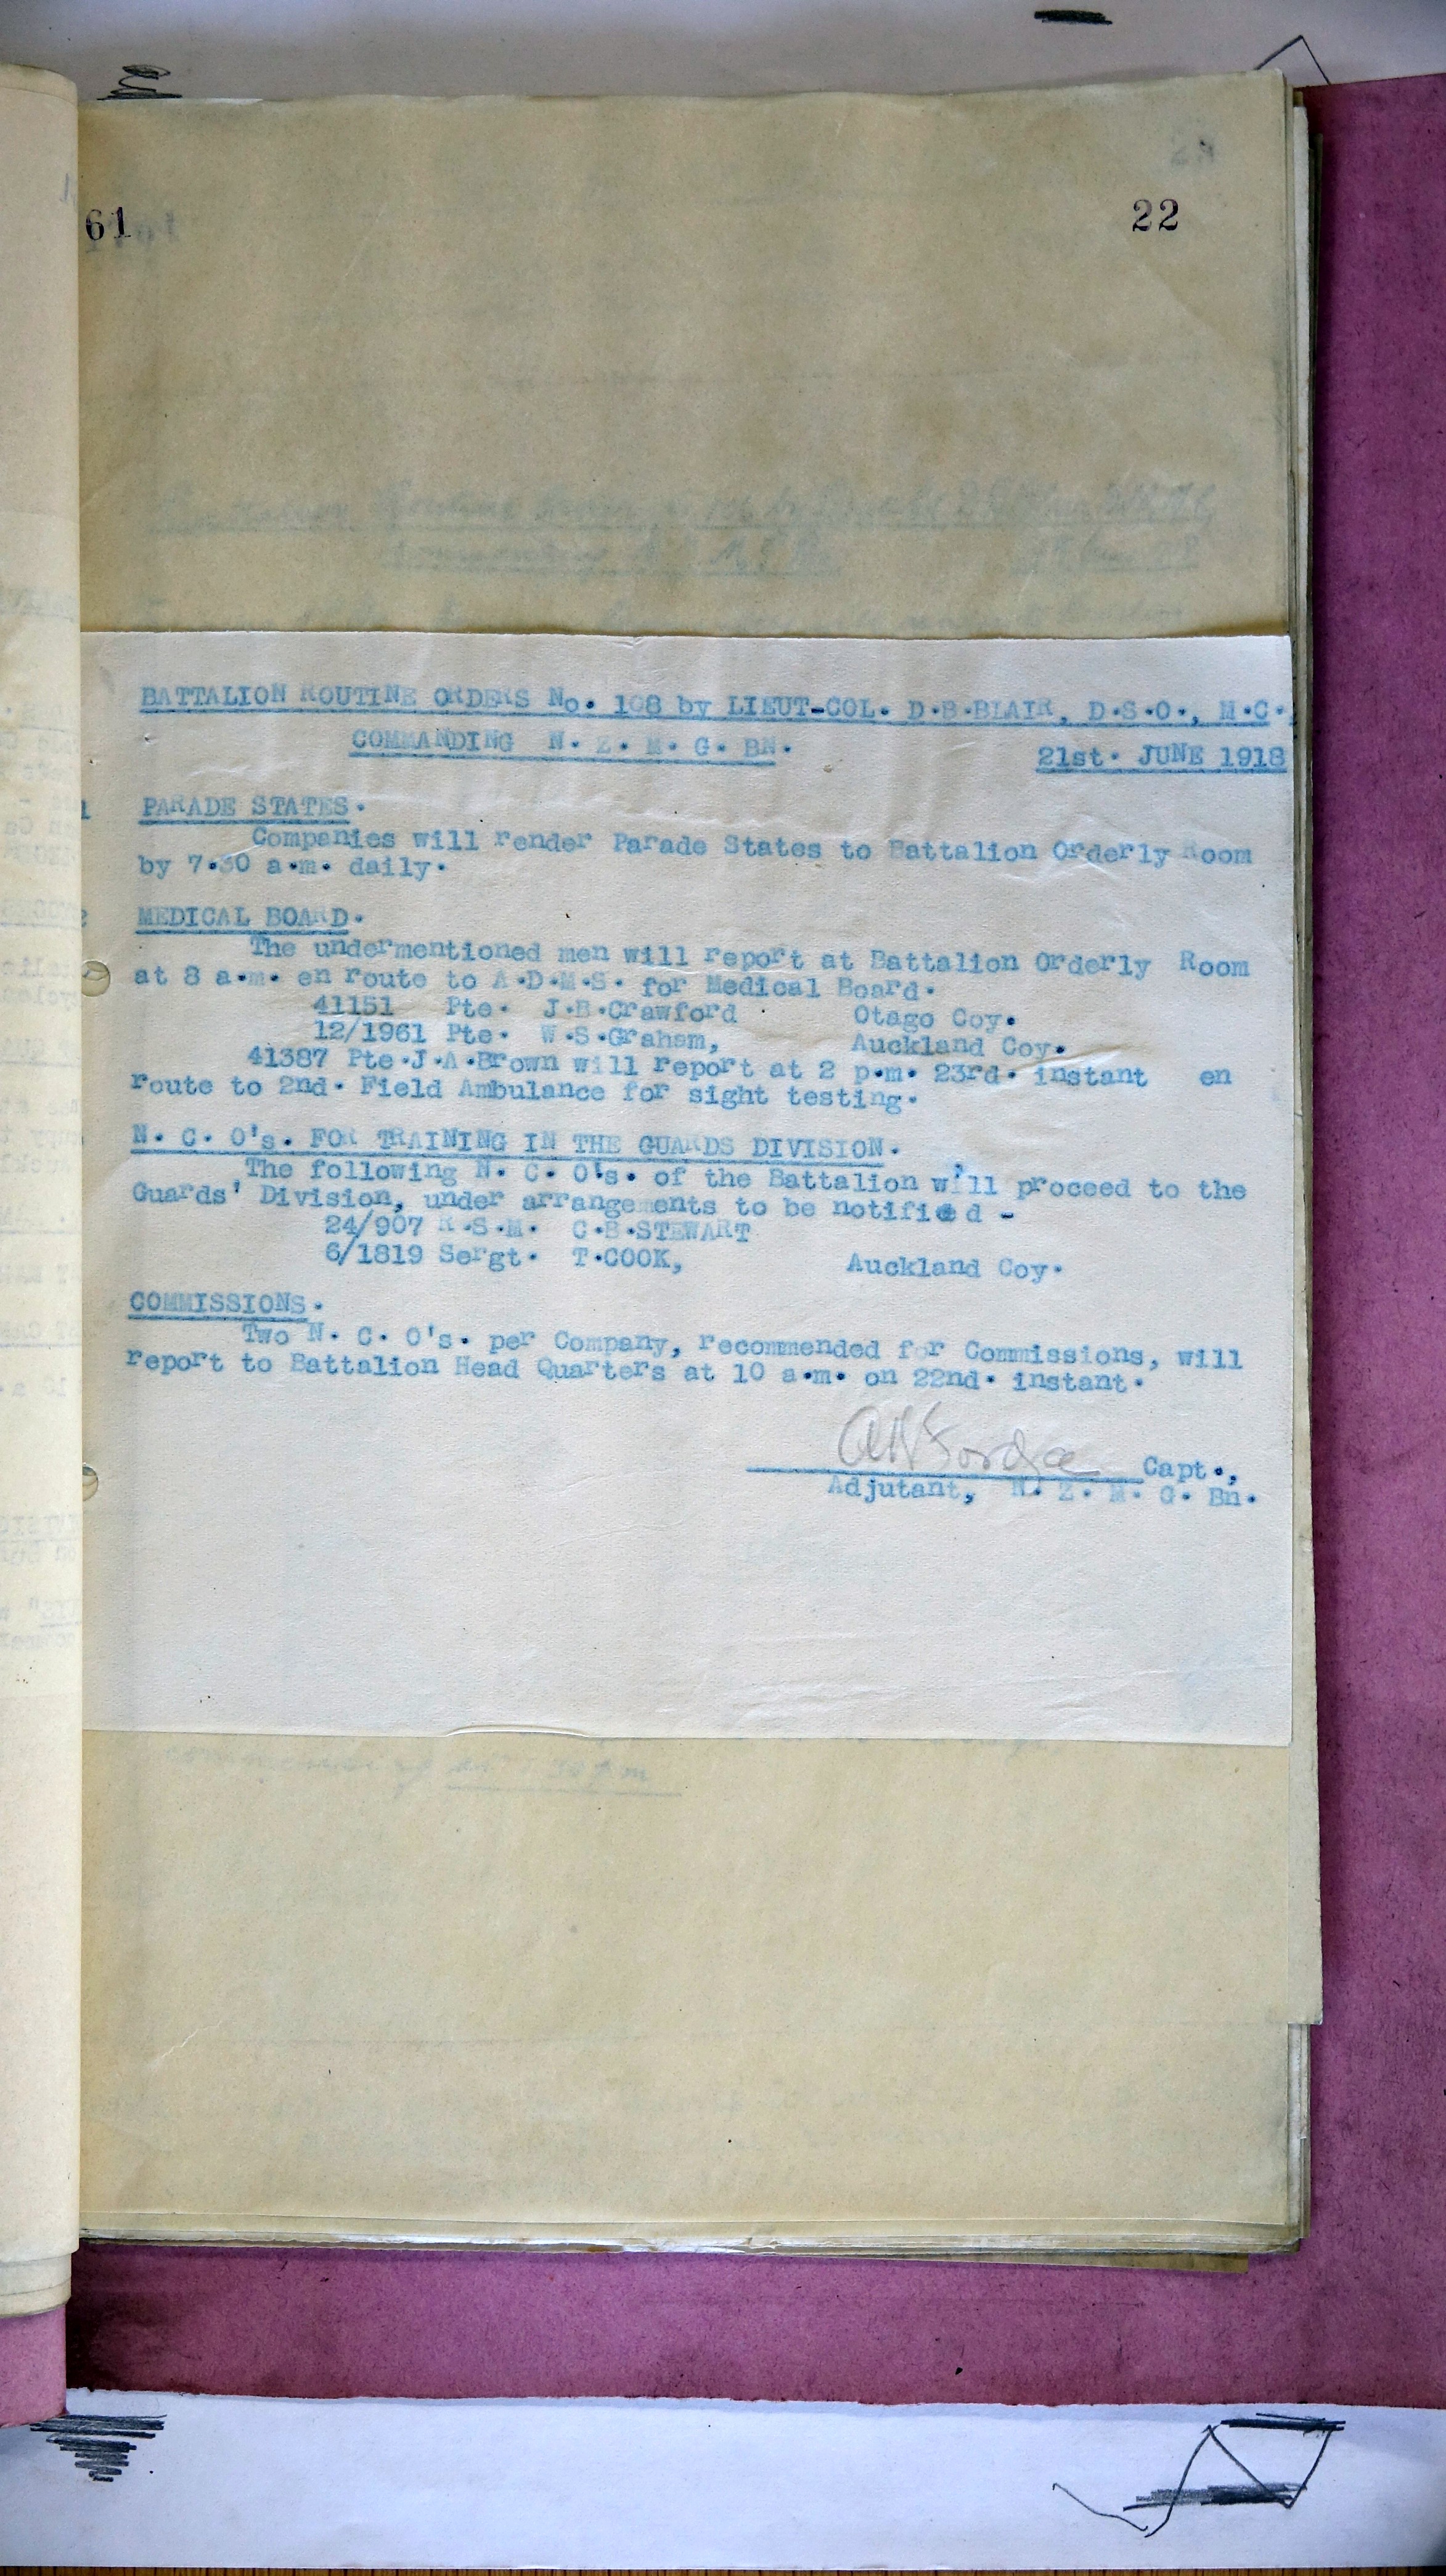 61
22
BATTALION ROUTINE ORDERS No. 108 by LIEUT-COL. D.B.BLAIR, D.S.O., M.C.,
COMMANDING N. Z. M. G. BN.
21st. JUNE 1918
1 PARADE STATES.
Companies will render Parade States to Battalion Orderly Room
by 7.30 a.m. daily.
2 MEDICAL BOARD.
The undermentioned men will report at Battalion Orderly Room
at 8 a.m. en route to A.D.M.S. for Medical Board.
41151 Pte. J.B.Crawford Otago Coy.
12/1961 Pte. W.S.Graham, Auckland Coy.
41387 Pte.J.A.Brown will report at 2 p.m. 23rd. instant en
route to 2nd. Field Ambulance for sight testing.
N. C. O's. FOR TRAINING IN THE GUARDS DIVISION.
The following N. C. O's. of the Battalion will proceed to the
Guards' Division, under arrangements to be notified -
24/907 R.S.M. C.B.STEWART
6/1819 Sergt. T.COOK, Auckland Coy.
COMMISSIONS.
Two N. C. O's. per Company, recommended for Commissions, will
report to Battalion Head Quarters at 10 a.m. on 22nd. instant.
Capt.,
Adjutant, N. Z. M. G. Bn.